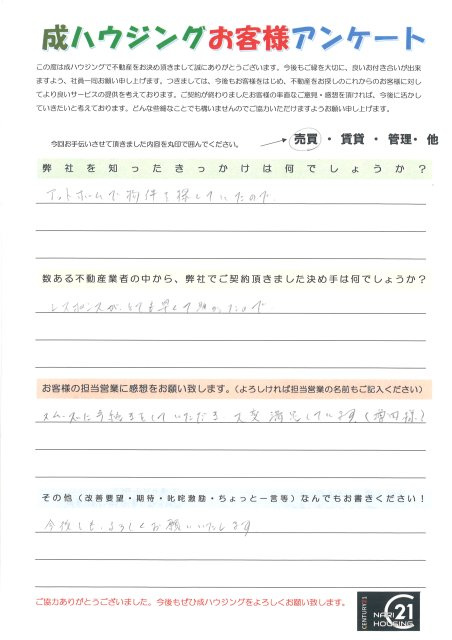 成ハウジングお客様アンケート
この度は成ハウジングで不動産をお決め頂きまして誠にありがとうございます。今後もご縁を大切に、良いお付き合いが出来
ますよう、社員一同お願い申し上げます。つきましては、今後もお客様をはじめ、不動産お探しのこれからのお客様に対し
てより良いサービスの提供を考えております。ご契約が終わりましたお客様の率直なご意見・感想を頂ければ、今後に活かし
ていきたいと考えております。どんな些細なことでも構いませんのでご協力いただけますようお願い申し上げます。
今回お手伝いさせて頂きました内容を丸印で囲んでください。 売買 ・ 賃貸 ・ 管理・ 他
弊社を知ったきっかけは何でしょうか?
アットホームで物件を探していたので
数ある不動産業者の中から、弊社でご契約頂きました決め手は何でしょうか?
レスポンスがとても早くて助かったので
お客様の担当営業に感想をお願い致します。(よろしければ担当営業の名前もご記入ください)
スムーズに手続きをしていただき、大変満足しています。(増田様)
その他(改善要望・期待・叱咤激励・ちょっと一言等)なんでもお書きください!
今後とも、よろしくお願いいたします
ご協力ありがとうございました。今後もぜひ成ハウジングをよろしくお願い致します。
CENTURY 21
NARI
HOUSING